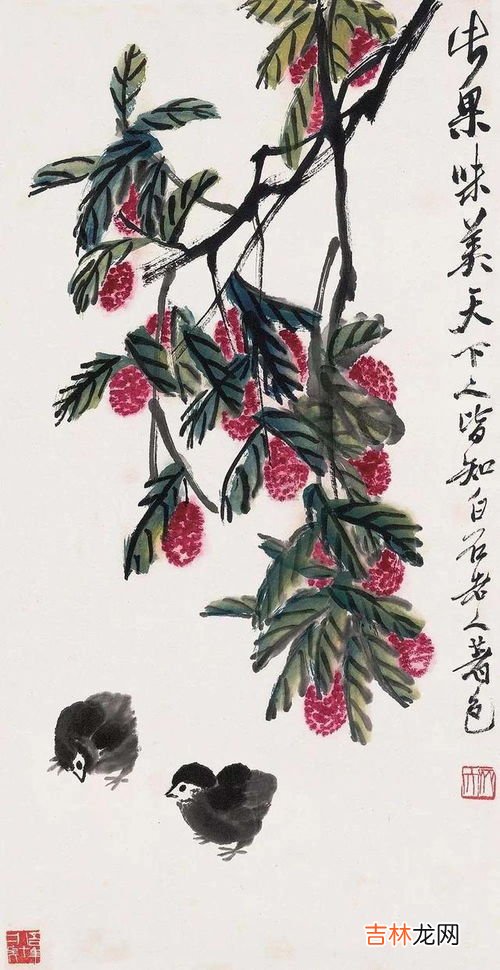 此果味美天下人皆知白石老人著色
吉林龙网